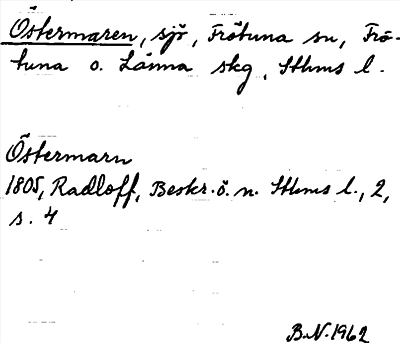 Östermaren, sjö, Frötuna sn, Frö-
tuna o. Länna skg, Sthms l.
Östermarn
1805, Radloff, Beskr. ö. n. Sthms l., 2,
s. 4
B.N. 1962